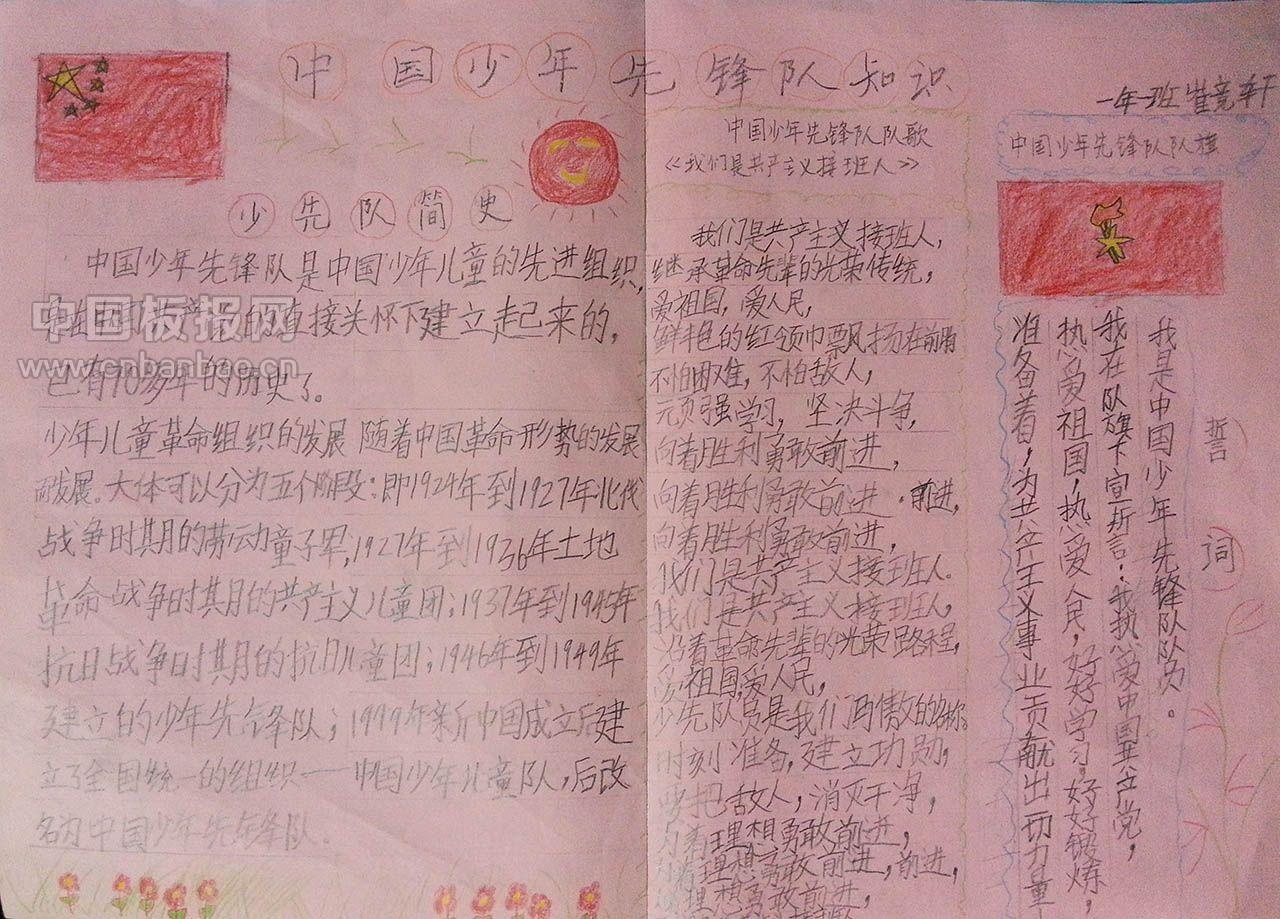 中国少年先锋队知识
一年一班 崔竞轩
少先队简史
中国少年先锋队是中国少年儿童的先进组织,
直接关怀下建立起已来的,
已有70多年的历史了。
少年儿童革命组织的发展 随着中国革命形势的发展
而发展。大体可以分为五个阶段:即1924年到1927年北伐
战争时期的劳动童子军;1927年到1936年土地
革命战争时期的共产主义儿童团;1937年到1945年
抗日战争时期的抗日儿童团;1946年到1949年
建立的少年先锋队;1999年新中国成立后建
立了全国统一的组织——中国少年儿童队,后改
名为中国少年先锋队。
中国少年先锋队队歌
《我们是共产主义接班人》
我们是共产主义接班人,
继承革命先辈的光荣传统,
爱祖国,爱人民,
鲜艳的红领巾飘扬在前胸
不怕困难,不怕敌人,
顽强学习,坚决斗争,
向着胜利勇敢前进,
向着胜利勇敢前进,前进,
向着胜利勇敢前进,
我们是共产主义接班人。
我们是共产主义接班人,
沿着革命先辈的光荣路程,
爱祖国,爱人民,
少先队员是我们骄傲的名称,
时刻准备,建立功勋,
要把敌人,消灭干净,
为着理想勇敢前进,
为着理想勇敢前进,前进,
为着理想勇敢前进,
中国少年先锋队队旗
誓词
我是中国少年先锋队队员。
我在队旗下宣誓:我热爱中国共产党,
热爱祖国,热爱人民,好好学习,好好锻炼,
准备着,为共产主义事业贡献出一切力量
中国板报网
www.cnbanbao.cn